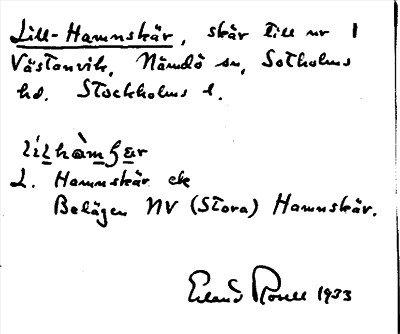 Lill-Hamnskär, skär till nr 1
Västanvik, Nämdö sn, Sotholms
hd. Stockholms l.
L. Hamnskär etc
Belägen NV (Stora) Hamnskär.
Erland Rosell 1933